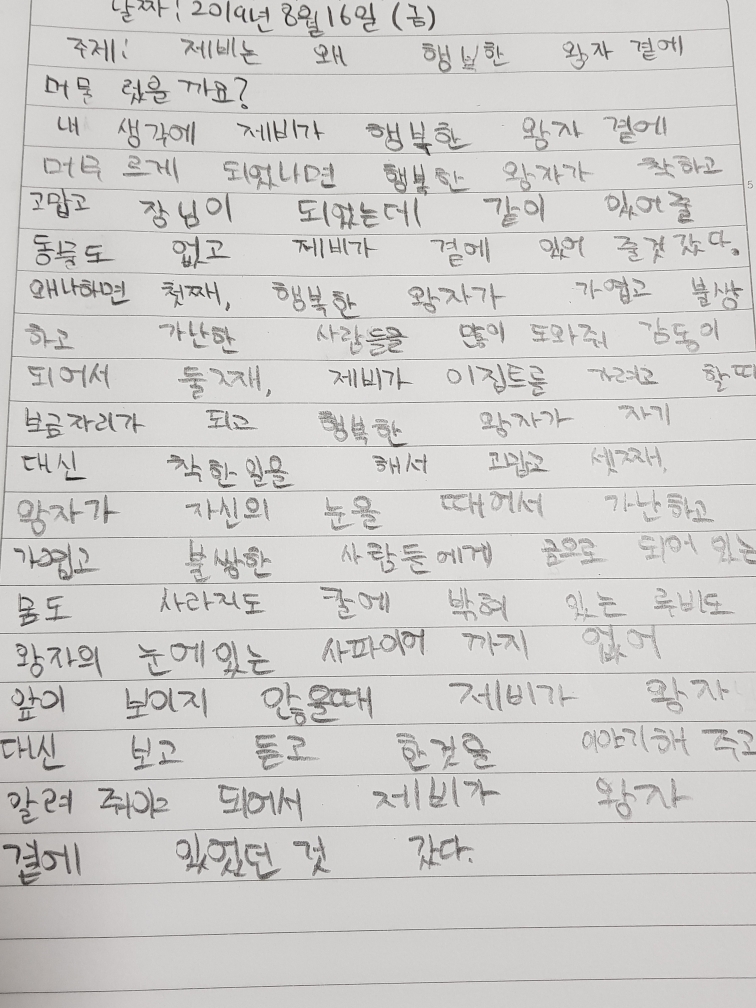 날짜: 2019년 8월 16일 (금)
주제: 제비는 왜 행복한 왕자 곁에
머물 렀을 까요?
내 생각에 제비가 행복한 왕자 곁에
머무 르게 되었냐면 행복한 왕자가 착하고
고맙고 장님이 되었는데 같이 있어줄
동물도 없고 제비가 곁에 있어 줄것 갔다.
왜나하면 첫째, 행복한 왕자가 가엽고 불상
하고 가난한 사람들을 많이 도와줘 감동이
되어서 둘재, 제비가 이집트를 자려고 할때
보금자리가 되고 행복한 왕자가 자기
대신 착한일을 해서 고맙고 셋째,
왕자가 자신의 눈을 때어서 가난하고
가엽고 불쌍한 사람들에게 금으로 되어 있는
몸도 사라지도 칼에 박혀 있는 루비도
왕자의 눈에있는 사파이어 까지 없어
앞이 보이지 안을때 제비가 왕자
대신 보고 듣고 한것을 이야기해 주고
알려 줘야 되어서 제비가 왕자
곁에 있었던 것 갔다.